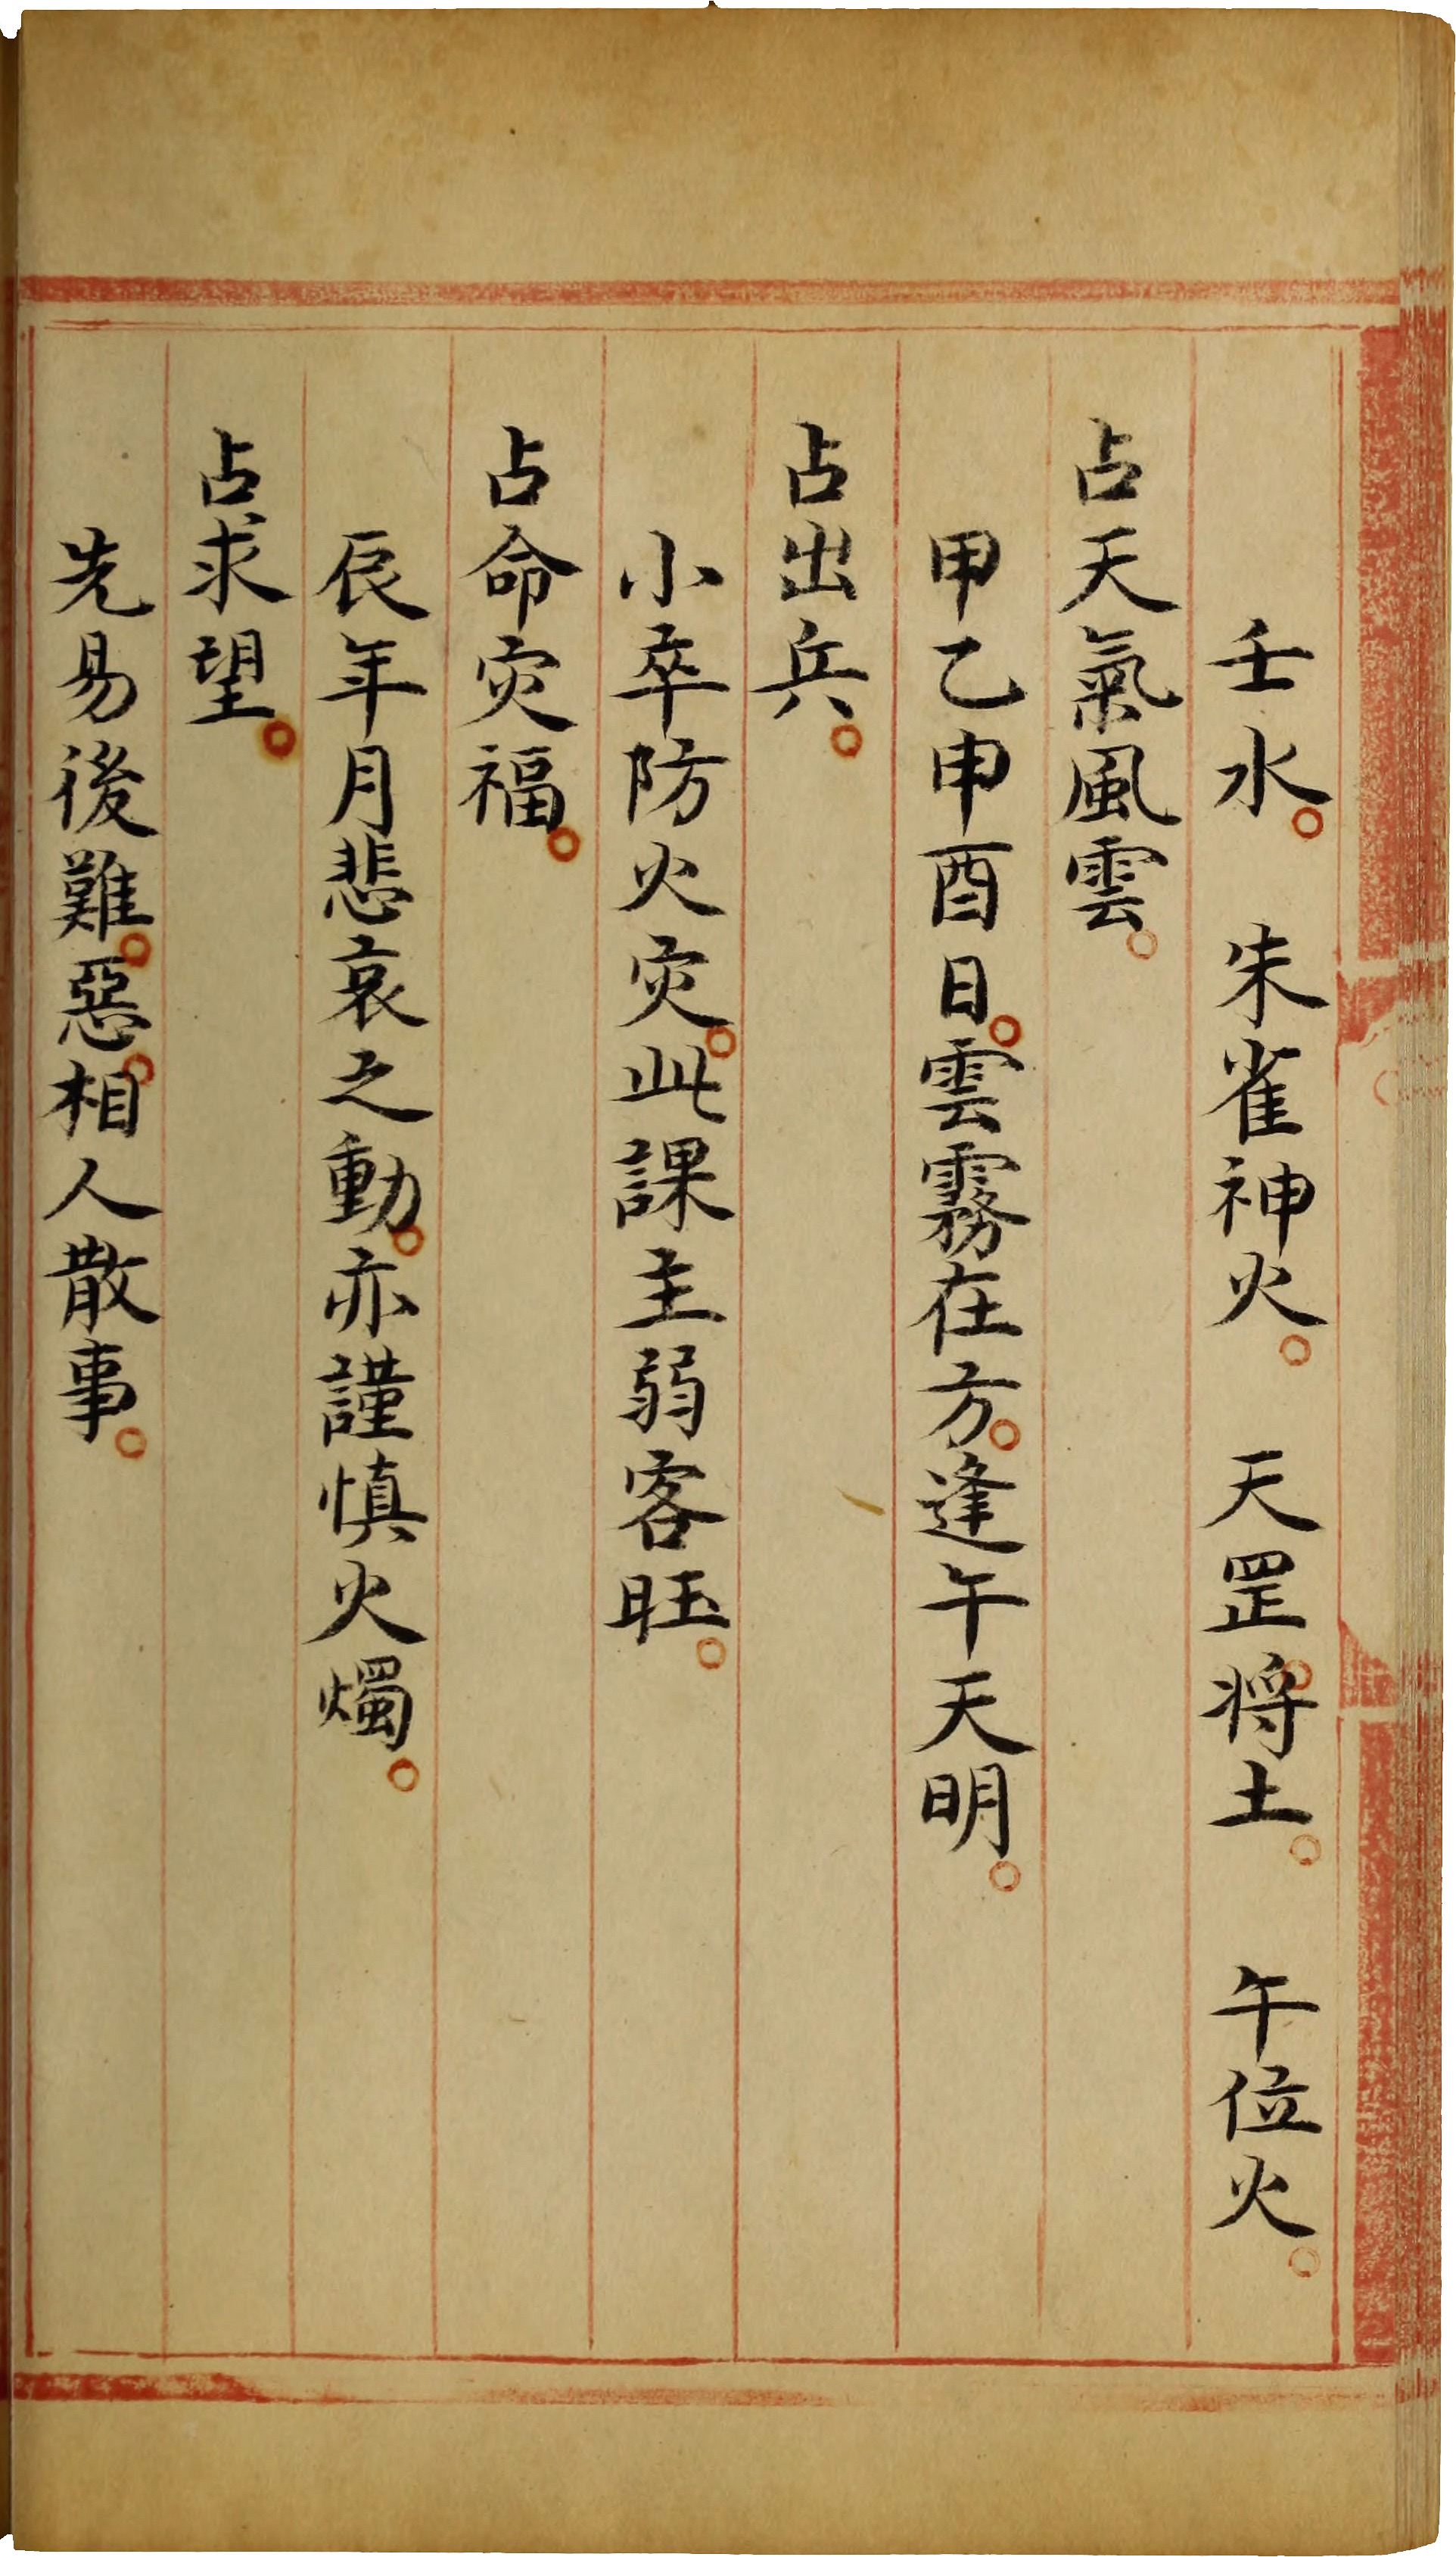 壬水。　朱雀神火。　天罡。將土。　午位火。
占天氣風雲。
甲乙申酉日。雲霧在方。逢午天明。
占出兵。
小卒防火灾。此課主弱客旺。
占命灾福。
辰年月悲哀之動。亦謹慎火燭。
占求望。
先易後難。惡。相人散事。